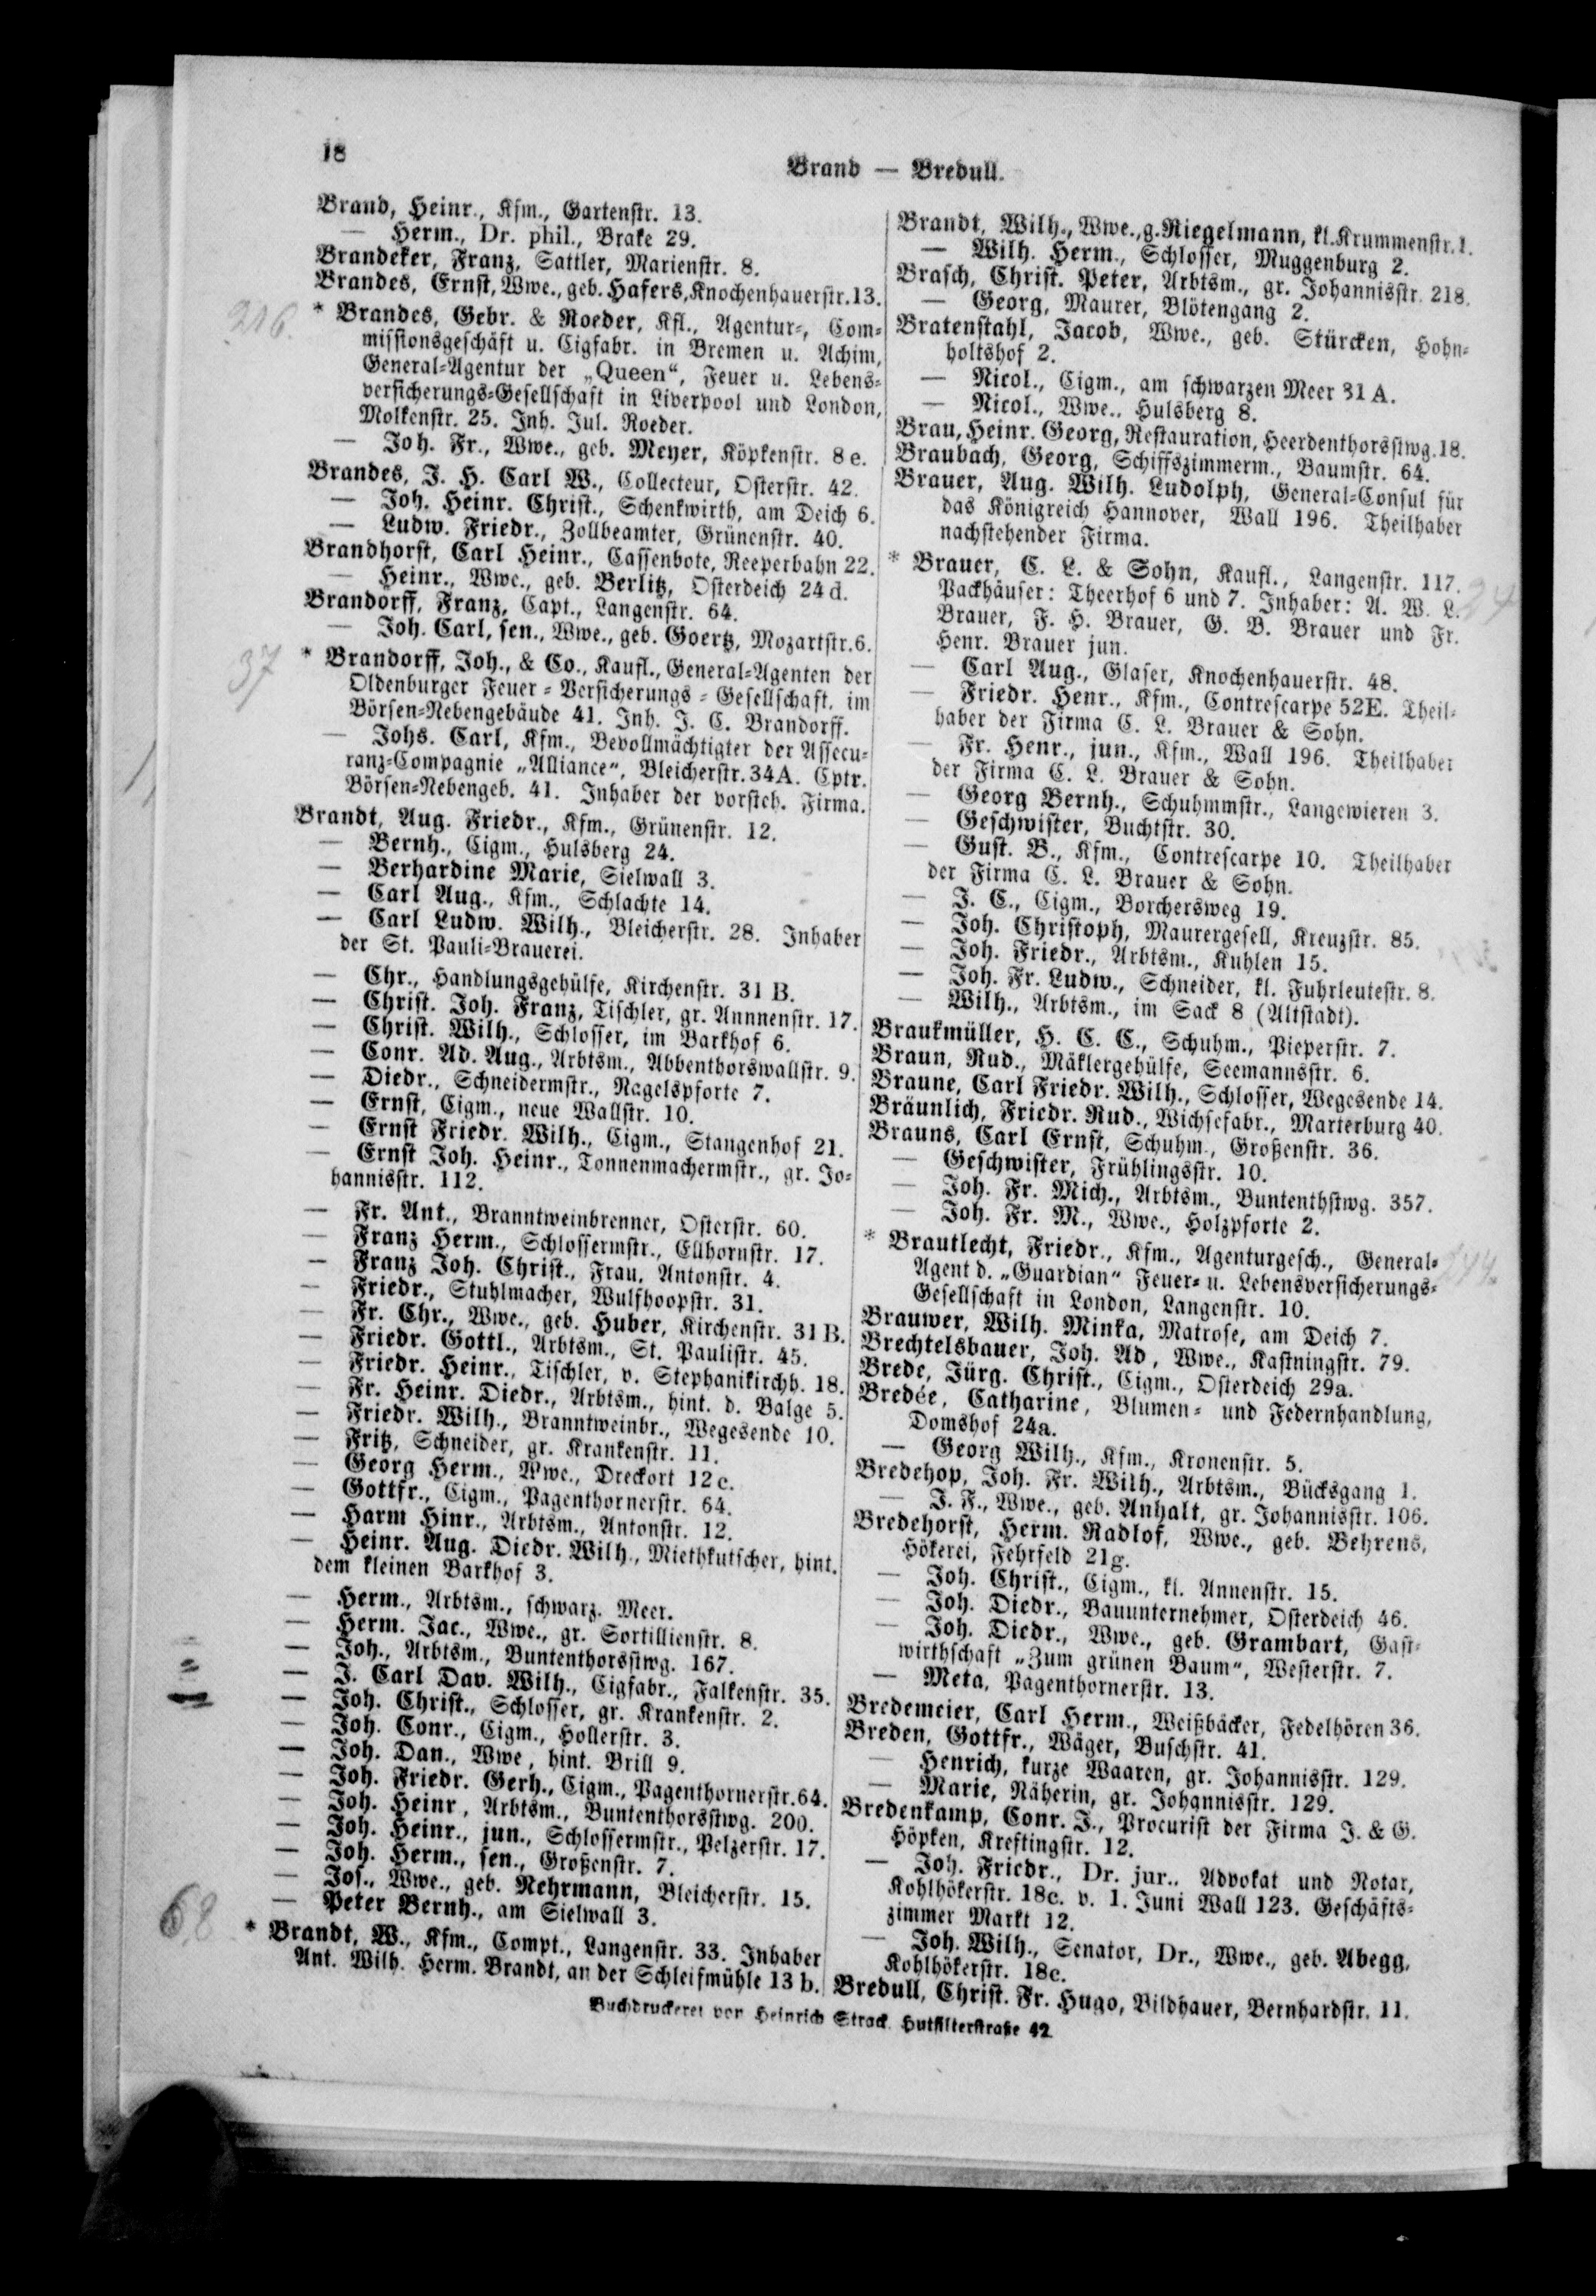 18
Brand — Bredull.
Brand, Heinr., Kfm., Gartenstr. 13.
— Herm., Dr. phil., Brake 29.
Brandeker, Franz, Sattler, Marienstr. 8.
Brandes, Ernst, Wwe., geb. Hafers, Knochenhauerstr. 13.
216.
* Brandes, Gebr. & Roeder, Kfl., Agentur-, Com-
missionsgeschäft u. Cigfabr. in Bremen u. Achim,
General-Agentur der „Queen“, Feuer u. Lebens-
versicherungs-Gesellschaft in Liverpool und London,
Molkenstr. 25. Inh. Jul. Roeder.
— Joh. Fr., Wwe., geb. Meyer, Köpkenstr. 8e.
Brandes, J. H. Carl W., Collecteur, Osterstr. 42.
— Joh. Heinr. Christ., Schenkwirth, am Deich 6.
— Ludw. Friedr., Zollbeamter, Grünenstr. 40.
Brandhorst, Carl Heinr., Cassenbote, Reeperbahn 22.
— Heinr., Wwe., geb. Berlitz, Osterdeich 24d.
Brandorff, Franz, Capt., Langenstr. 64.
— Joh. Carl, sen., Wwe., geb. Goertz, Mozartstr. 6.
37
* Brandorff, Joh., & Co., Kaufl., General-Agenten der
Oldenburger Feuer-Versicherungs-Gesellschaft, im
Börsen-Nebengebäude 41. Inh. J. C. Brandorff.
— Johs. Carl, Kfm., Bevollmächtigter der Assecu-
ranz-Compagnie „Alliance“, Bleicherstr. 34A. Cptr.
Börsen-Nebengeb. 41. Inhaber der vorsteh. Firma.
Brandt, Aug. Friedr., Kfm., Grünenstr. 12.
— Bernh., Cigm., Hulsberg 24.
— Berhardine Marie, Sielwall 3.
— Carl Aug., Kfm., Schlachte 14.
— Carl Ludw. Wilh., Bleicherstr. 28. Inhaber
der St. Pauli-Brauerei.
— Chr., Handlungsgehülfe, Kirchenstr. 31 B.
— Christ. Joh. Franz, Tischler, gr. Annnenstr. 17.
— Christ. Wilh., Schlosser, im Barkhof 6.
— Conr. Ad. Aug., Arbtsm., Abbenthorswallstr. 9.
— Diedr., Schneidermstr., Nagelspforte 7.
— Ernst, Cigm., neue Wallstr. 10.
— Ernst Friedr. Wilh., Cigm., Stangenhof 21.
— Ernst Joh. Heinr., Tonnenmachermstr., gr. Jo-
hannisstr. 112.
— Fr. Ant., Branntweinbrenner, Osterstr. 60.
— Franz Herm., Schlossermstr., Ellhornstr. 17.
— Franz Joh. Christ., Frau, Antonstr. 4.
— Friedr., Stuhlmacher, Wulfhoopstr. 31.
— Fr. Chr., Wwe., geb. Huber, Kirchenstr. 31 B.
— Friedr. Gottl., Arbtsm., St. Paulistr. 45.
— Friedr. Heinr., Tischler, v. Stephanikirchh. 18.
— Fr. Heinr. Diedr., Arbtsm., hint. d. Balge 5.
— Friedr. Wilh., Branntweinbr., Wegesende 10.
— Fritz, Schneider, gr. Krankenstr. 11.
— Georg Herm., Wwe., Dreckort 12c.
— Gottfr., Cigm., Pagenthornerstr. 64.
— Harm Hinr., Arbtsm., Antonstr. 12.
— Heinr. Aug. Diedr. Wilh., Miethkutscher, hint.
dem kleinen Barkhof 3.
— Herm., Arbtsm., schwarz. Meer.
— Herm. Jac., Wwe., gr. Sortillienstr. 8.
— Joh., Arbtsm., Buntenthorsstwg. 167.
— J. Carl Dav. Wilh., Cigfabr., Falkenstr. 35.
— Joh. Christ., Schlosser, gr. Krankenstr. 2.
— Joh. Conr., Cigm., Hollerstr. 3.
— Joh. Dan., Wwe, hint. Brill 9.
— Joh. Friedr. Gerh., Cigm., Pagenthornerstr. 64.
— Joh. Heinr, Arbtsm., Buntenthorsstwg. 200.
— Joh. Heinr., jun., Schlossermstr., Pelzerstr. 17.
— Joh. Herm., sen., Großenstr. 7.
— Jos., Wwe., geb. Nehrmann, Bleicherstr. 15.
— Peter Bernh., am Sielwall 3.
68
* Brandt, W., Kfm., Compt., Langenstr. 33. Inhaber
Ant. Wilh. Herm. Brandt, an der Schleifmühle 13 b.
Brandt, Wilh., Wwe., g. Riegelmann, kl. Krummenstr. 1.
— Wilh. Herm., Schlosser, Muggenburg 2.
Brasch, Christ. Peter, Arbtsm., gr. Johannisstr. 218.
— Georg, Maurer, Blötengang 2.
Bratenstahl, Jacob, Wwe., geb. Stürcken, Hohn-
holtshof 2.
— Nicol., Cigm., am schwarzen Meer 31 A.
— Nicol., Wwe., Hulsberg 8.
Brau, Heinr. Georg, Restauration, Heerdenthorsstwg. 18.
Braubach, Georg, Schiffszimmerm., Baumstr. 64.
Brauer, Aug. Wilh. Ludolph, General-Consul für
das Königreich Hannover, Wall 196. Theilhaber
nachstehender Firma.
* Brauer, C. L. & Sohn, Kaufl., Langenstr. 117.
Packhäuser: Theerhof 6 und 7. Inhaber: A. W. L.
24
Brauer, F. H. Brauer, G. B. Brauer und Fr.
Henr. Brauer jun.
— Carl Aug., Glaser, Knochenhauerstr. 48.
— Friedr. Henr., Kfm., Contrescarpe 52E. Theil-
haber der Firma C. L. Brauer & Sohn.
— Fr. Henr., jun., Kfm., Wall 196. Theilhaber
der Firma C. L. Brauer & Sohn.
— Georg Bernh., Schuhmmstr., Langewieren 3.
— Geschwister, Buchtstr. 30.
— Gust. B., Kfm., Contrescarpe 10. Theilhaber
der Firma C. L. Brauer & Sohn.
— J. C., Cigm., Borchersweg 19.
— Joh. Christoph, Maurergesell, Kreuzstr. 85.
— Joh. Friedr., Arbtsm., Kuhlen 15.
— Joh. Fr. Ludw., Schneider, kl. Fuhrleutestr. 8.
— Wilh., Arbtsm., im Sack 8 (Altstadt).
Braukmüller, H. C. C., Schuhm., Pieperstr. 7.
Braun, Rud., Mäklergehülfe, Seemannsstr. 6.
Braune, Carl Friedr. Wilh., Schlosser, Wegesende 14.
Bräunlich, Friedr. Rud., Wichsefabr., Marterburg 40.
Brauns, Carl Ernst, Schuhm., Großenstr. 36.
— Geschwister, Frühlingsstr. 10.
— Joh. Fr. Mich., Arbtsm., Buntenthstwg. 357.
— Joh. Fr. M., Wwe., Holzpforte 2.
* Brautlecht, Friedr., Kfm., Agenturgesch., General-
Agent d. „Guardian“ Feuer- u. Lebensversicherungs-
Gesellschaft in London, Langenstr. 10.
Brauwer, Wilh. Minka, Matrose, am Deich 7.
Brechtelsbauer, Joh. Ad, Wwe., Kastningstr. 79.
Brede, Jürg. Christ., Cigm., Osterdeich 29a.
Bredée, Catharine, Blumen- und Federnhandlung,
Domshof 24a.
— Georg Wilh., Kfm., Kronenstr. 5.
Bredehop, Joh. Fr. Wilh., Arbtsm., Bücksgang 1.
— J. F., Wwe., geb. Anhalt, gr. Johannisstr. 106.
Bredehorst, Herm. Radlof, Wwe., geb. Behrens,
Hökerei, Fehrfeld 21g.
— Joh. Christ., Cigm., kl. Annenstr. 15.
— Joh. Diedr., Bauunternehmer, Osterdeich 46.
— Joh. Diedr., Wwe., geb. Grambart, Gast-
wirthschaft „Zum grünen Baum“, Westerstr. 7.
— Meta, Pagenthornerstr. 13.
Bredemeier, Carl Herm., Weißbäcker, Fedelhören 36.
Breden, Gottfr., Wäger, Buschstr. 41.
— Henrich, kurze Waaren, gr. Johannisstr. 129.
— Marie, Näherin, gr. Johannisstr. 129.
Bredenkamp, Conr. J., Procurist der Firma J. & G.
Höpken, Kreftingstr. 12.
— Joh. Friedr., Dr. jur., Advokat und Notar,
Kohlhökerstr. 18c. v. 1. Juni Wall 123. Geschäfts-
zimmer Markt 12.
— Joh. Wilh., Senator, Dr., Wwe., geb. Abegg,
Kohlhökerstr. 18c.
Bredull, Christ. Fr. Hugo, Bildhauer, Bernhardstr. 11.
Buchdruckerei von Heinrich Strack, Hutfilterstraße 42